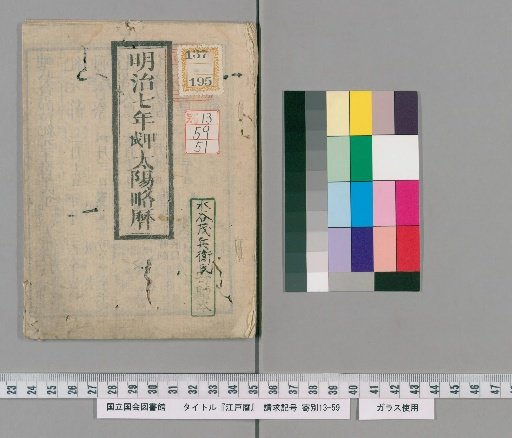 明治七年甲戌太陽略暦
137
195
13
59
51
水谷茂兵衛氏
23 24 25 26 27 28 29 30 31 32 33 34 35 36 37 38 39 40 41 42 43 44 45 46 47 48 49 50 51
国立国会図書館 タイトル『江戸暦』 請求記号 寄別13-59 ガラス使用